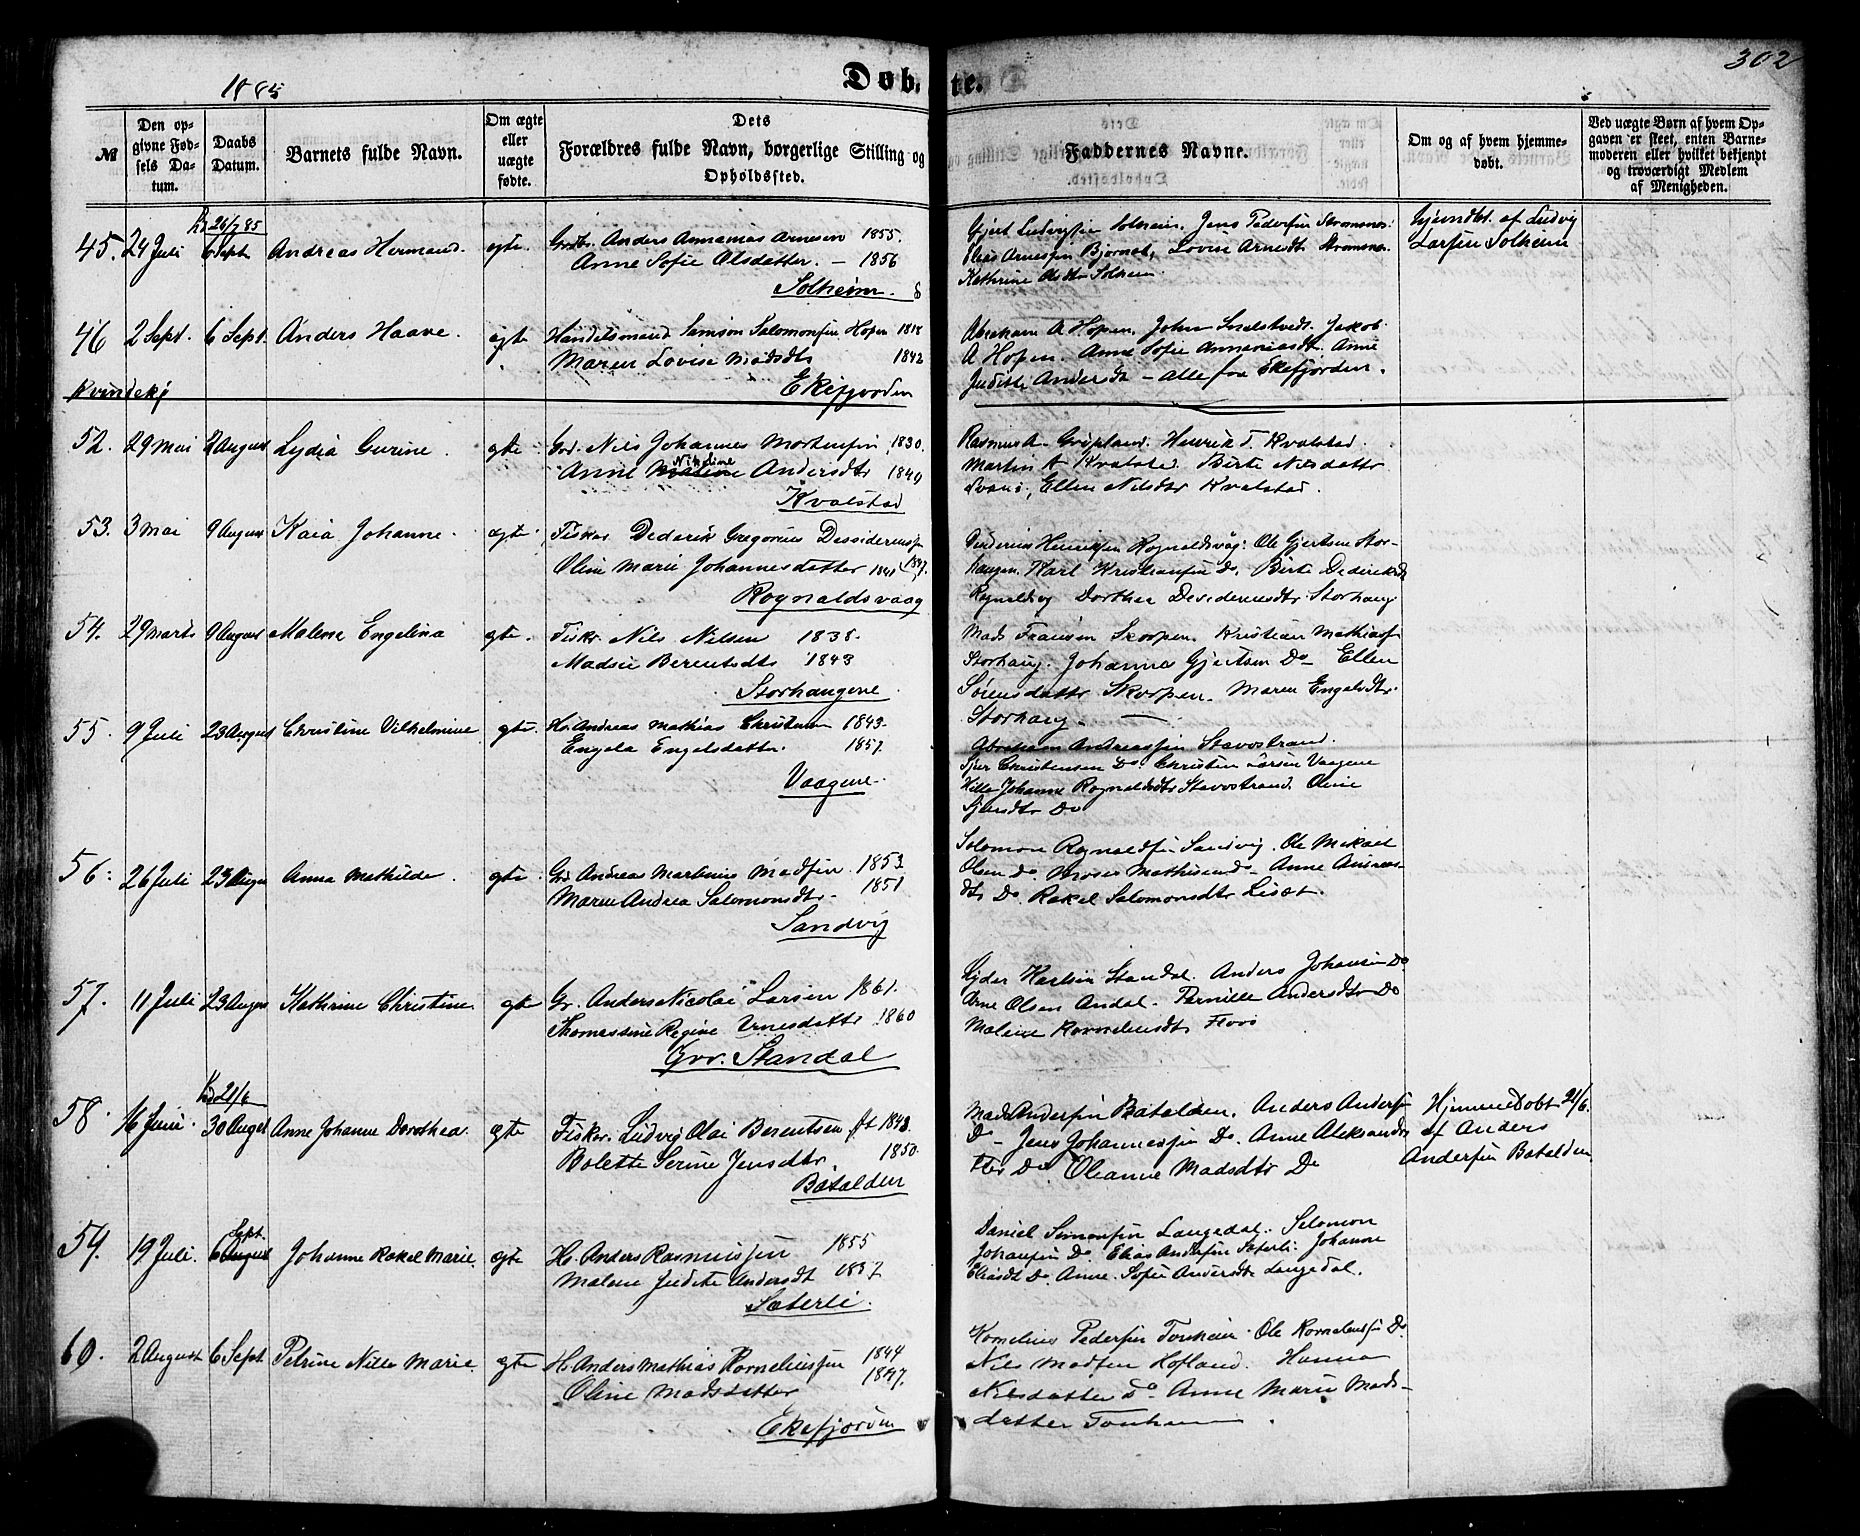 1885
Døbte.
302
№
Den opgivne Fødsels Datum.
Daabs Datum.
Barnets fulde Navn.
Om ægte eller uægte fødte.
Dets Forældres fulde Navn, borgerlige Stilling og Opholdssted.
Faddernes Navne.
Om og af hvem hjemmedøbt.
Ved uægte Børn af hvem Opgaven er skeet, enten Barnemoderen eller hvilket bekjendt og troværdigt Medlem af Menigheden.
45. 24 Juli 26/7 85 6 Sept. Andreas Hermand. ægte. Anders Annanias Arnesen 1855.
Anne Sofie Olsdatter. – 1856
Solheim.
Gjert Ludvigsen Solheim. Jens Pedersen Stromsnes.
Arnesen Bjornset, Lovise Arnesdt Stromsnes.
Kathrine Olsdtr Solheim.
af Ludvig
Larsen Solheim
46 2 Sept. 6 Sept. Anders Haave. ægte Handelsmand Samson Salomonsen Hopen 1818
Maren Lovise Madsdtr 1842
Ekefjorden
Abraham A Hopen. John Jakob
A Hopen. Anne Sofie Annaniasdt. Anne
Judithe Andersdt – alle fra Ekefjorden.
Kvindekj
52. 29 Mai 2 August Lydia Gurine. ægte. Nils Johannes Mortensen 1830.
Anne Nikoline Andersdtr 1840
Kvalstad
Rasmus A. Henrik T. Kvalstad.
Martin A Kvalstad. Birte Nilsdatter
Svanø, Ellen Nilsdtr Kvalstad.
53. 3 Mai 9 August Kaia Johanne. ægte. Fisker Dederik Gregorius Dessideriussen
Oline Marie Johannesdatter 1841
Rognaldsvaag
Henriksen Rognaldsvåg. Ole Gjertsen Stor-
haugen. Karl Kristiansen Do. Birte Dederiksdt
Dorthea Desideriusdtr. Storhaug
54. 29 Marts 9 August Malene Engelina ægte. Fisker Nils Nilsen 1838.
Madsie Berentsdtr 1843
Storhaugene
Mads Fransen Skorpen. Kristian Mathias
Storhaug. Johannes Gjertsen Do – Ellen
Sørensdattr Skorpen. Maren Engelsdtr.
Storhaug.
55. 9 Juli 23 August Christine Vilhelmine ægte. Andreas Mathias Christensen 1843.
Engela Engelsdatter. 1857
Vaagene.
Abraham Andreassen Stavostrand.
Christensen Do Christen Larsen Vaagene
Johanne Rognaldsdtr Stavostrand. Oline
Do
56. 26 Juli 23 August Anna Mathilde. ægte. Andreas Martinus Madsen. 1853.
Maren Andrea Salomonsdtr. 1851
Sandvig
Solomon Rognaldsen Sandvig. Ole Mikael
Olsen Do Moses Mathisen Do – Anne Andreas-
dtr Do Rakel Salomonsdtr Lisæt.
57. 11 Juli 23 August Kathrine Christine. ægte Anders Nicolai Larsen 1861.
Thomassine Regine Arnesdattr 1860
Grv. Standal
Karlsen Standal. Anders Johansen Do
Arne Olsen Andal. Pernille Andersdtr Do
Malene Kornelius dtr Florø
58. 16 Juni 21/6 30 August Anne Johanne Dorothea. ægte Fisker. Ludvig Olai Berentsen 1848.
Bolette Serine Jensdtr. 1850.
Batalden
Mads Andersen Batalden. Anders Andersen
Do – Jens Johannessen Do. Anne Aleksandr
Do Oleanne Madsdtr Do
Hjemmedøbt 21/6.
af Anders
Andersen Batalden
59. 19 Juli. 6 Sept. Johanne Rakel Marie ægte Anders Rasmussen 1855
Malene Judite Andersdt 1857
Sæterli.
Daniel Simonsen Langedal. Solomon
Johansen Do Elias Andersen Sæterli. Johanne
Eliasdt Do. Anne Sofie Andersdt Langedal.
60. 2 August 6 Sept Petrine Nille Marie ægte Anders Mathias Korneliussen 1844
Oline Madsdatter 1847.
Ekefjorden
Kornelius Pedersen Tonheim. Ole Korneliussen Do.
Nils Madsen Hofland. Hanna
Nilsdatter Do Anne Marie Mads-
datter Tonheim.